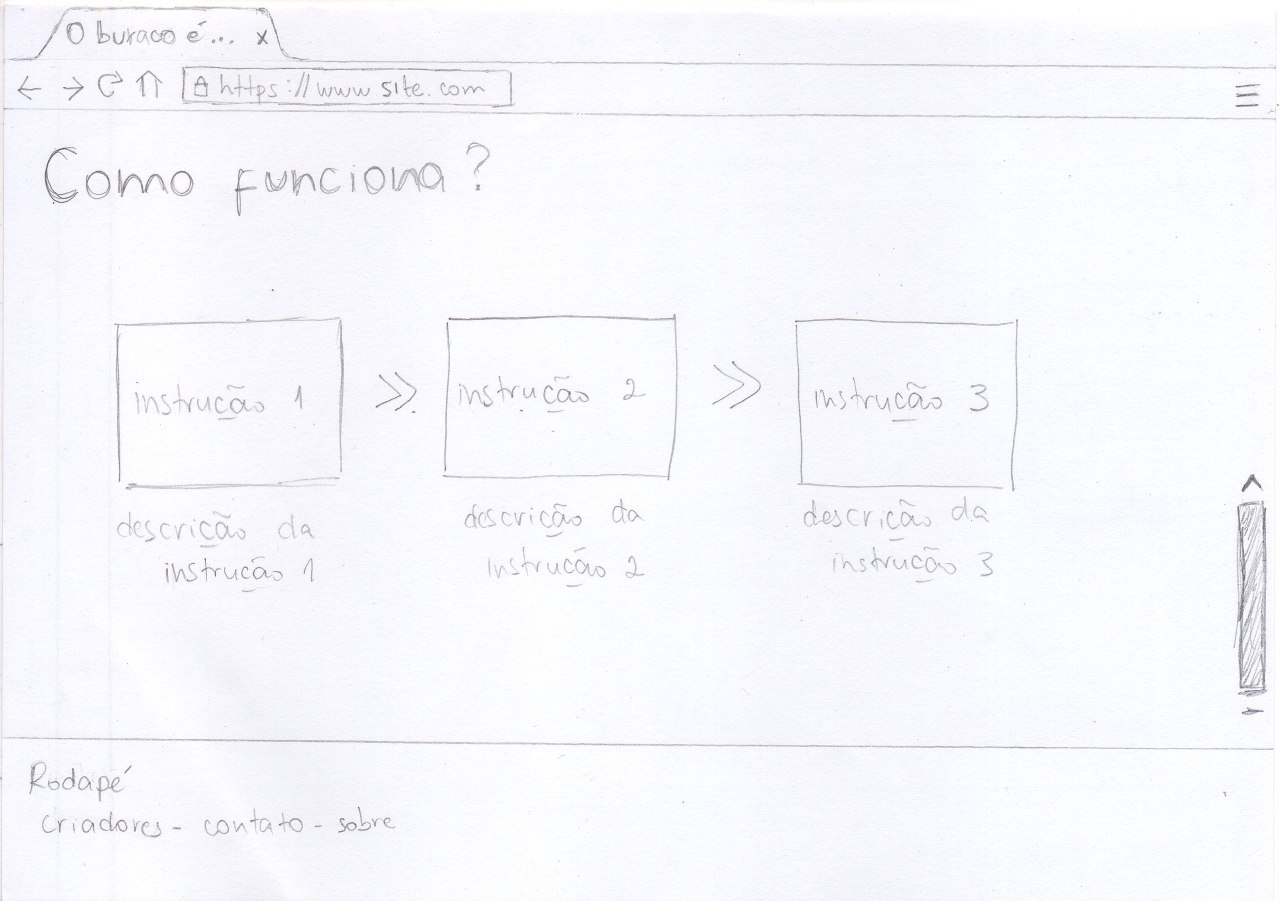 O buraco é... x
https://www.site.com
Como funciona?
instrução 1 >> instrução 2 >> instrução 3
descrição da
instrução 1
descrição da
instrução 2
descrição da
instrução 3
Rodapé
criadores - contato - sobre